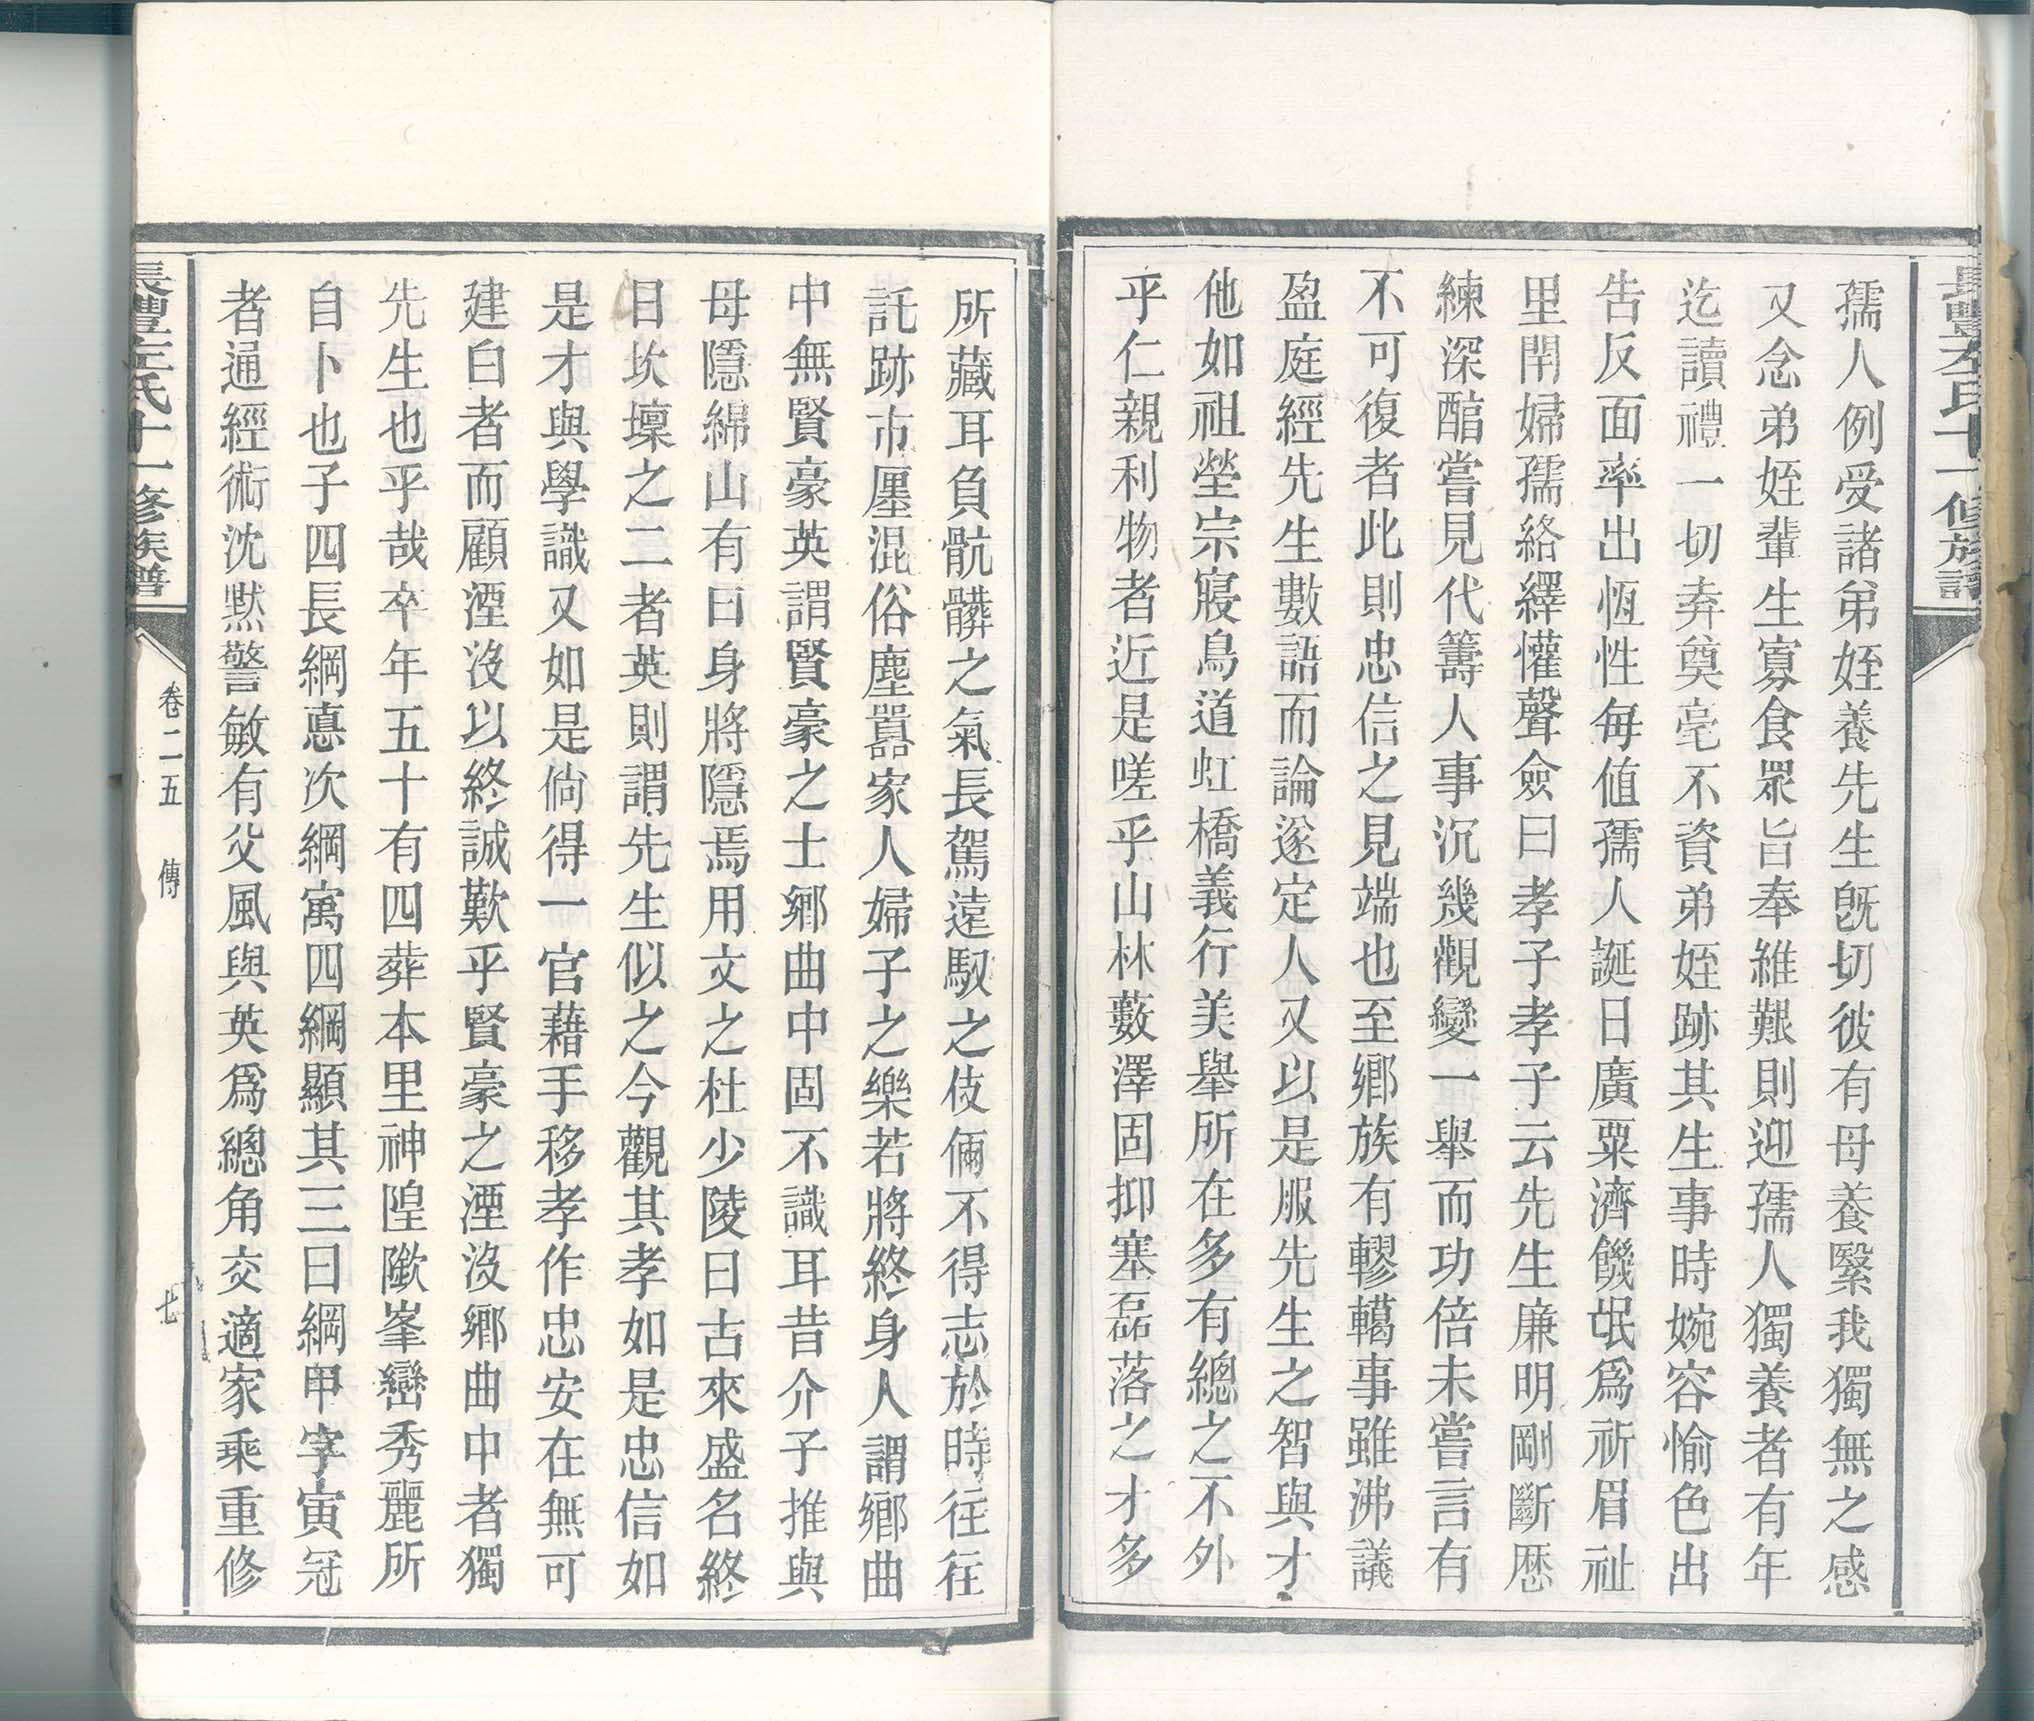 長豐左氏十一修族譜
孺人例受諸弟姪養先生旣切彼有母養繄我獨無之感
又念弟姪輩生寡食眾旨奉維艱則迎孺人獨養者有年
迄讀禮一切弆奠亳不資弟姪跡其生事時婉容愉色出
告反面率出恆性每値孺人誕日廣粟濟饑氓爲祈眉祉
里閈婦孺絡繹懽聲僉曰孝子孝子云先生廉明剛斷歷
練深醕嘗見代籌人事沉幾觀變一舉而功倍未嘗言有
不可復者此則忠信之見端也至鄉族有轇轕事雖沸議
盈庭經先生數語而論遂定人又以是服先生之智與才
他如祖塋宗寢鳥道虹橋義行美舉所在多有總之不外
乎仁親利物者近是嗟乎山林藪澤固抑塞磊落之才多
所藏耳負骯髒之氣長駕遠馭之伎倆不得志於時往往
託跡市廛混俗塵囂家人婦子之樂若將終身人謂鄉曲
中無賢豪英謂賢豪之士鄉曲中固不識耳昔介子推與
母隱綿山有曰身將隱焉用文之杜少陵曰古來盛名終
日坎壈之二者英則謂先生似之今觀其孝如是忠信如
是才與學識又如是倘得一官藉手移孝作忠安在無可
建白者而顧湮沒以終誠歎乎賢豪之湮沒鄉曲中者獨
先生也乎哉卒年五十有四葬本里神隍歘峯巒秀麗所
自卜也子四長綱悳次綱寓四綱顯其三曰綱甲字寅冠
者通經術沈默警敏有父風與英爲總角交適家乘重修
長豐左氏十一修族譜
卷二五 傳
七